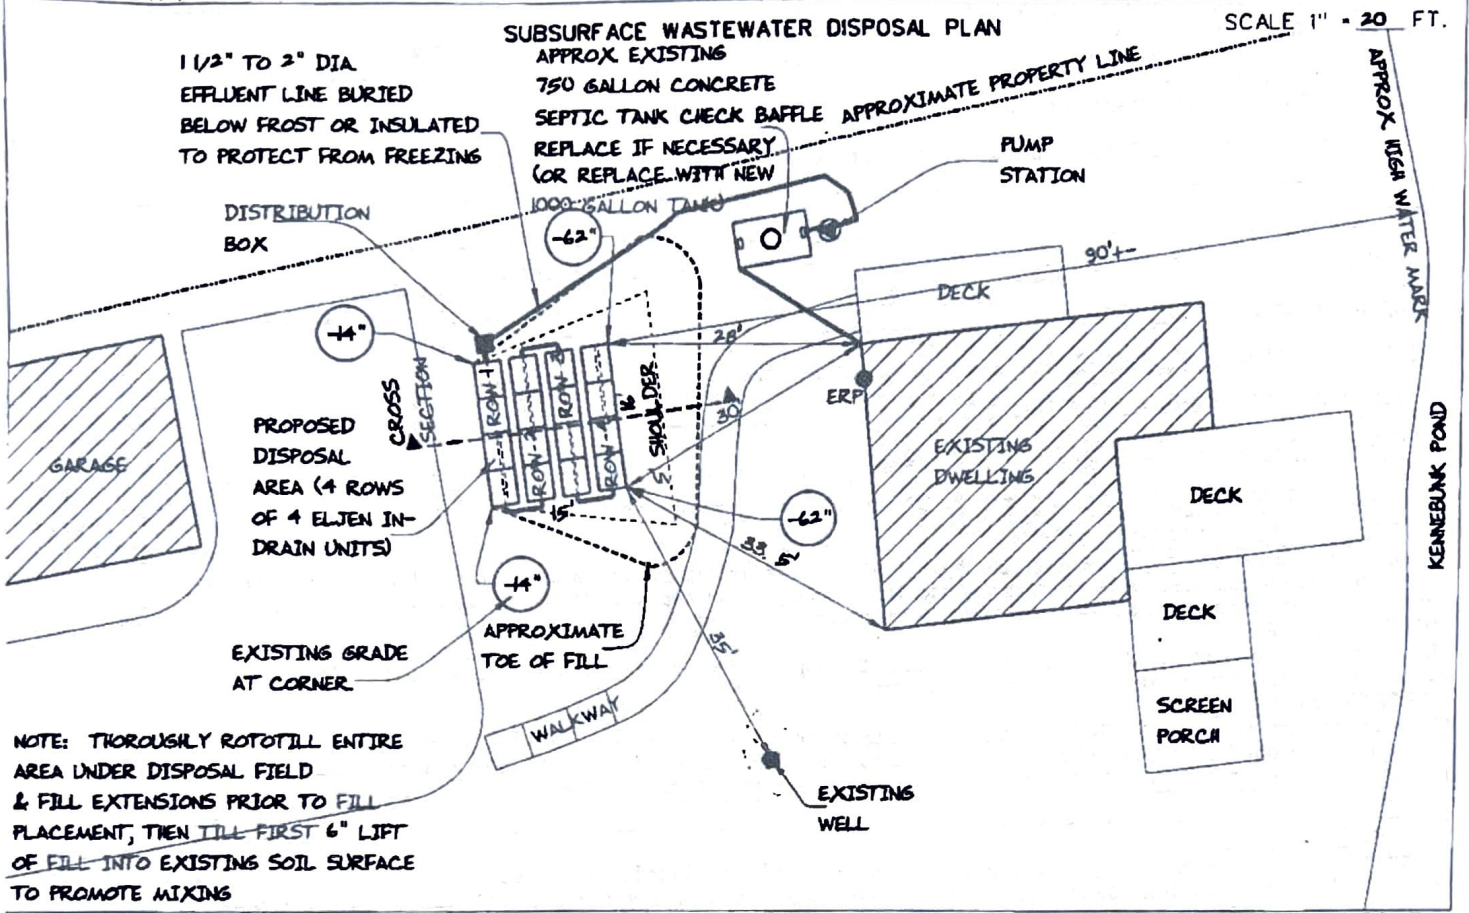 SUBSURFACE WASTEWATER DISPOSAL PLAN
SCALE 1" = 20 FT.
1 1/2" TO 2" DIA.
EFFLUENT LINE BURIED
BELOW FROST OR INSULATED
TO PROTECT FROM FREEZING
APPROX EXISTING
750 GALLON CONCRETE
SEPTIC TANK CHECK BAFFLE
REPLACE IF NECESSARY
(OR REPLACE WITH NEW
1000 GALLON TANK)
APPROXIMATE PROPERTY LINE
PUMP
STATION
APPROX HIGH WATER MARK
DISTRIBUTION
BOX
-62"
90'+-
DECK
-14"
28'
CROSS
SECTION
ROW 1
ROW 2
ROW 3
ROW 4
16
SHOULDER
30'
ERP
PROPOSED
DISPOSAL
AREA (4 ROWS
OF 4 ELJEN IN-
DRAIN UNITS)
GARAGE
EXISTING
DWELLING
DECK
KENNEBUNK POND
15'
5'
-62"
33.5'
-14"
APPROXIMATE
TOE OF FILL
35'
DECK
EXISTING GRADE
AT CORNER
WALKWAY
SCREEN
PORCH
EXISTING
WELL
NOTE: THOROUGHLY ROTOTILL ENTIRE
AREA UNDER DISPOSAL FIELD
& FILL EXTENSIONS PRIOR TO FILL
PLACEMENT, THEN TILL FIRST 6" LIFT
OF FILL INTO EXISTING SOIL SURFACE
TO PROMOTE MIXING